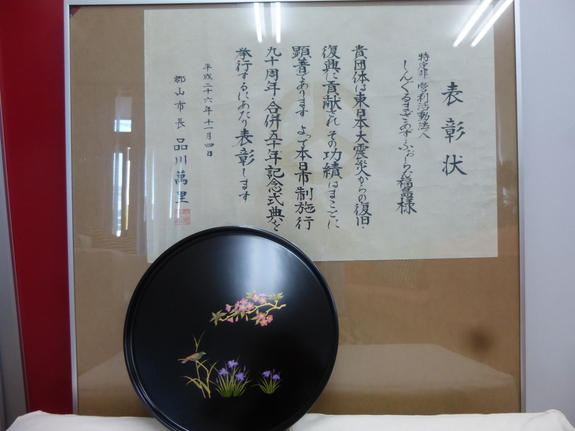 表彰状
特定非営利活動法人
しんぐるまざあず・ふぉーらむ福島様
貴団体は東日本大震災からの復旧
復興に貢献されその功績はまことに
顕著であります よって本日市制施行
九十周年・合併五十年記念式典を
挙行するにあたり表彰します
平成二十六年十一月四日
郡山市長 品川萬里